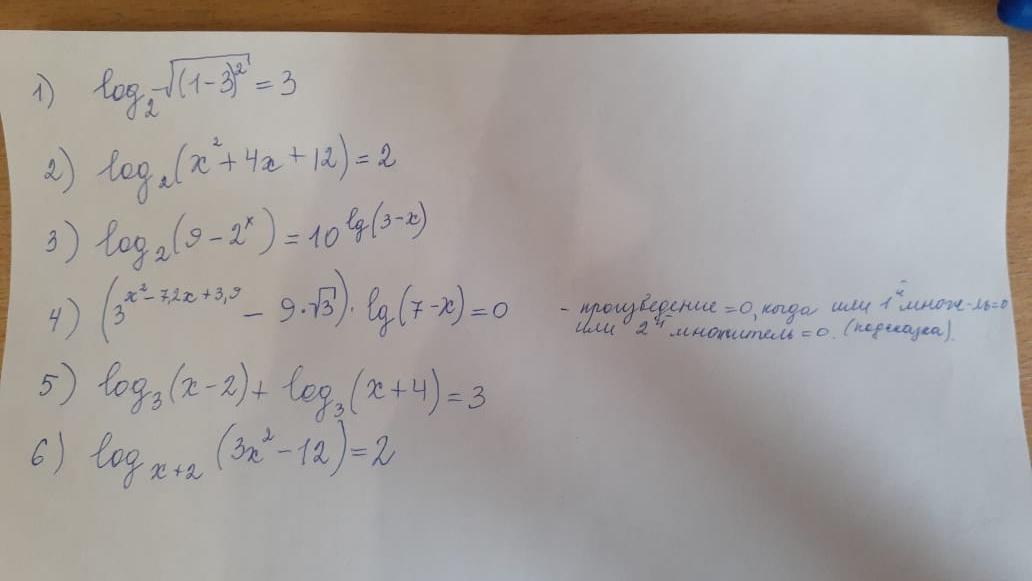 1) log₂ √(1-3)² = 3
2) log₂(x² + 4x + 12) = 2
3) log₂(9 - 2ˣ) = 10^lg(3-x)
4) (3^x²-7,2x+3,9 - 9·√3)·lg(7-x) = 0
- произведение = 0, когда или 1й множ-ль=0
или 2ый множитель = 0. (подсказка).
5) log₃(x-2) + log₃(x+4) = 3
6) logₓ₊₂(3x² - 12) = 2